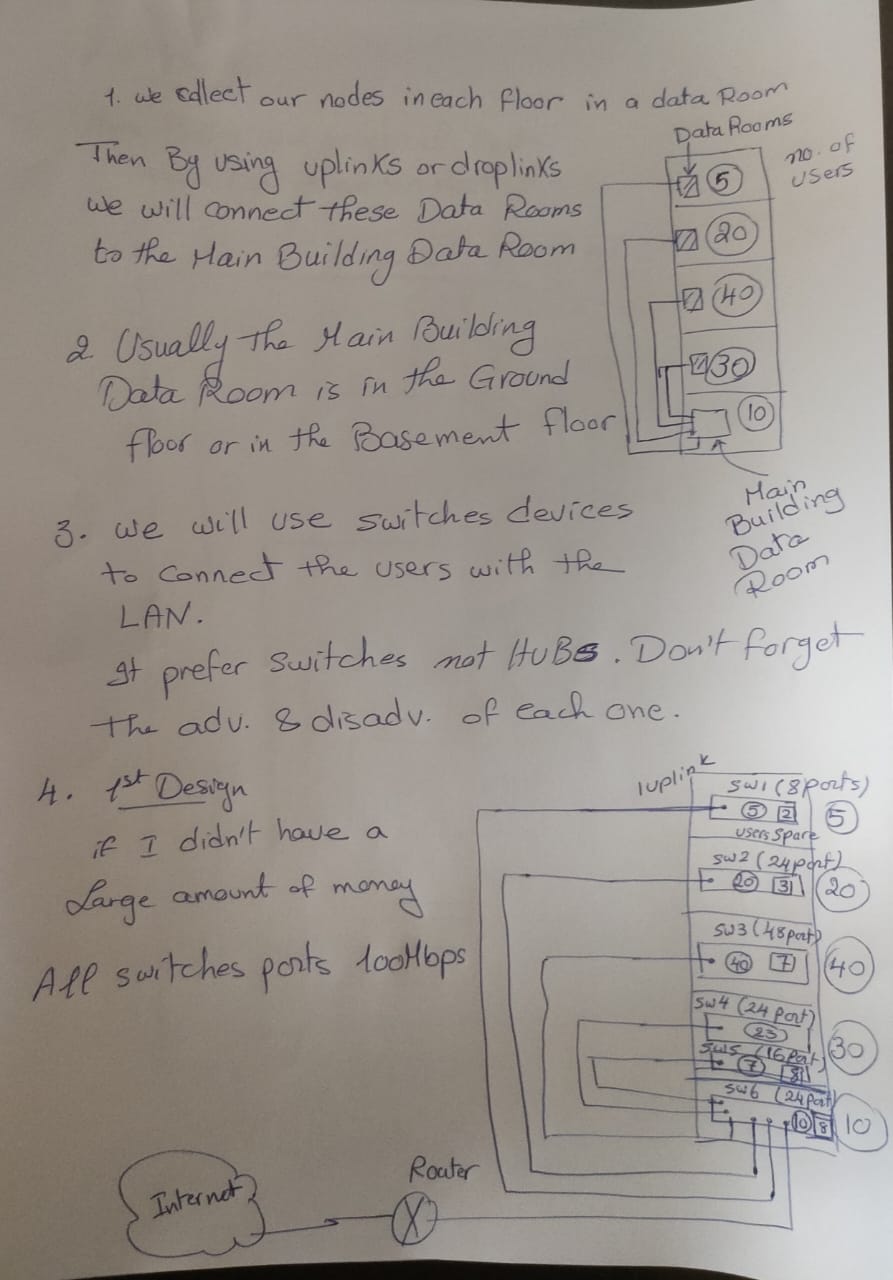 1. we collect our nodes in each floor in a data Room
Data Rooms
no. of
users
Then By using uplinks or droplinks
we will connect these Data Rooms
to the Main Building Data Room
5
20
40
30
10
Main
Building
Data
Room
2 Usually the Main Building
Data Room is in the Ground
floor or in the Basement floor
3. we will use switches devices
to connect the users with the
LAN.
It prefer switches not HUBs. Don't forget
the adv. & disadv. of each one.
4. 1st Design
if I didn't have a
Large amount of money
All switches ports 100Mbps
1uplink
SW1 (8 ports)
5 2 5
users spare
SW2 (24 port)
20 3 20
SW3 (48 port)
40 7 40
SW4 (24 port)
23
30
SW5 (16 port)
7 8
SW6 (24 port
10 8 10
Router
Internet